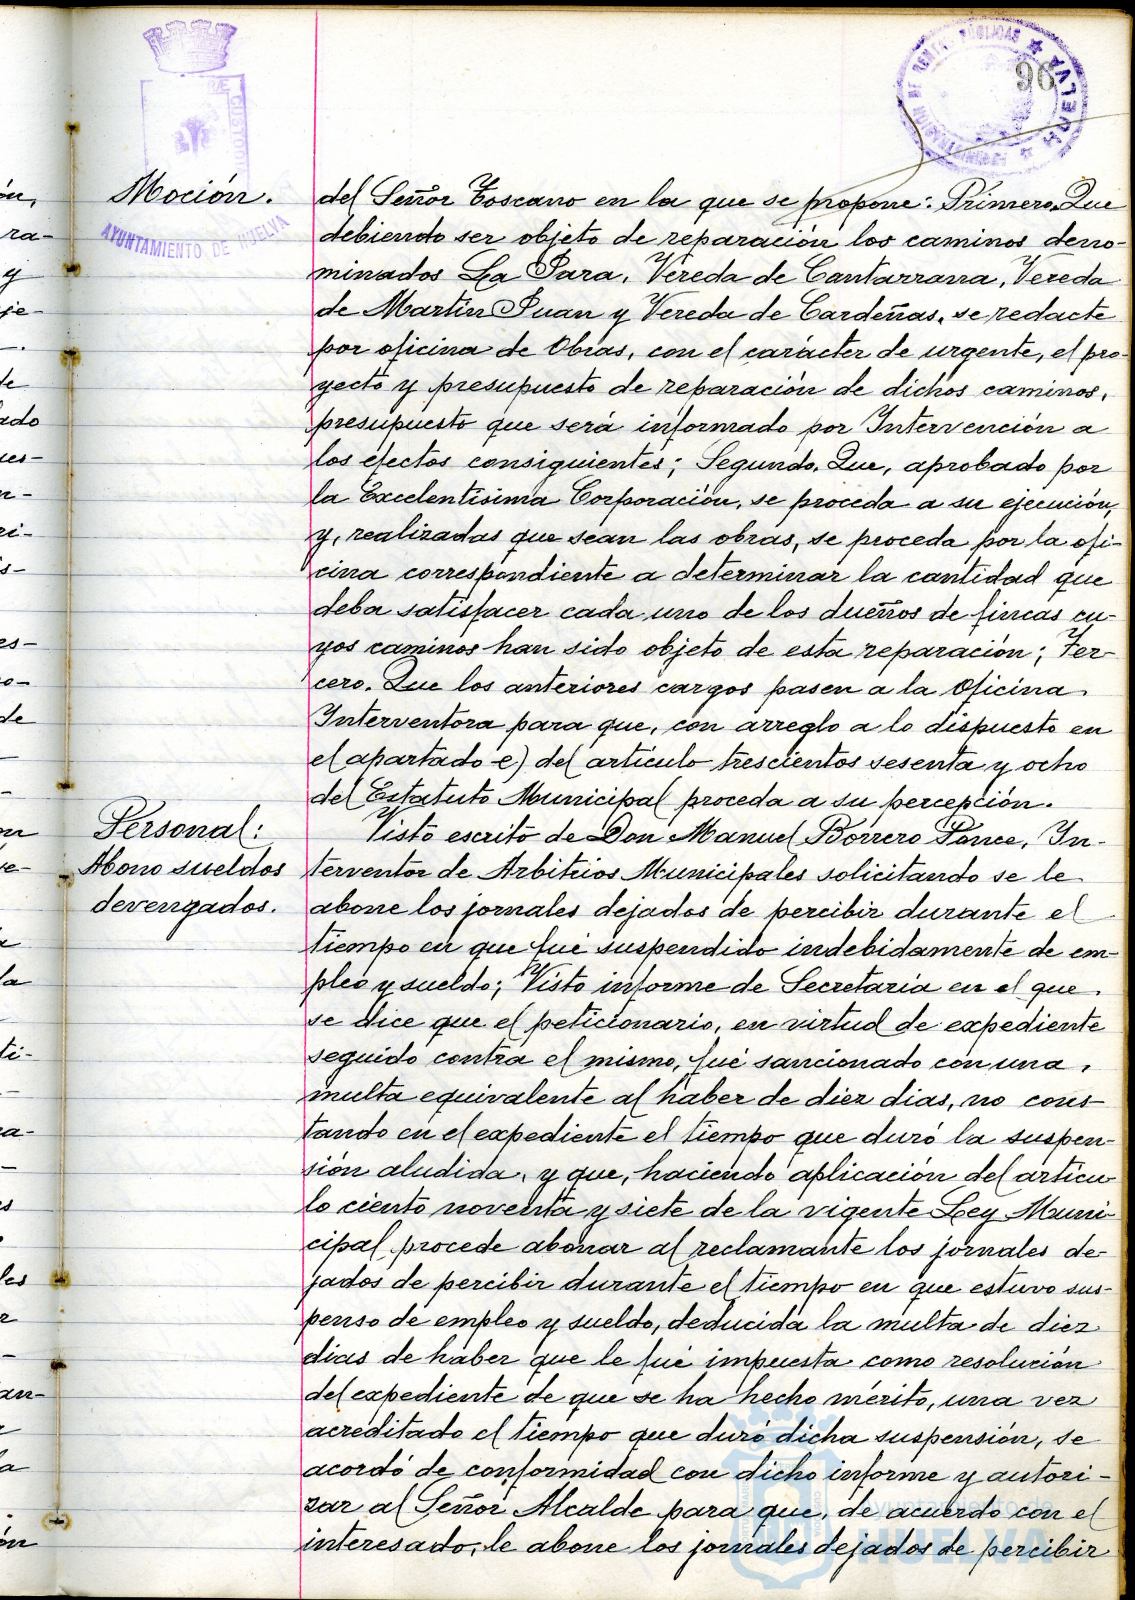 96
AYUNTAMIENTO DE HUELVA
Moción.
del Señor Toscano en la que se propone: Primero. Que
debiendo ser objeto de reparación los caminos deno-
minados La Jara, Vereda de Cantarrana, Vereda
de Martín Juan y Vereda de Cardeñas, se redacte
por oficina de Obras, con el carácter de urgente, el pro-
yecto y presupuesto de reparación de dichos caminos,
presupuesto que será informado por Intervención a
los efectos consiguientes; Segundo. Que, aprobado por
la Excelentisima Corporación, se proceda a su ejecución,
y, realizadas que sean las obras, se proceda por la ofi-
cina correspondiente a determinar la cantidad que
deba satisfacer cada uno de los dueños de fincas cu-
yos caminos han sido objeto de esta reparación; Ter-
cero. Que los anteriores cargos pasen a la Oficina
Interventora para que, con arreglo a lo dispuesto en
el apartado e) del artículo trescientos sesenta y ocho
del Estatuto Municipal proceda a su percepción.
Personal:
Abono sueldos
devengados.
Visto escrito de Don Manuel Borrero Ponce, In-
terventor de Arbitrios Municipales solicitando se le
abone los jornales dejados de percibir durante el
tiempo en que fué suspendido indebidamente de em-
pleo y sueldo; Visto informe de Secretaria en el que
se dice que el peticionario, en virtud de expediente
seguido contra el mismo, fué sancionado con una
multa equivalente al haber de diez dias, no cons-
tando en el expediente el tiempo que duró la suspen-
sión aludida, y que, haciendo aplicación del articu-
lo ciento noventa y siete de la vigente Ley Muni-
cipal procede abonar al reclamante los jornales de-
jados de percibir durante el tiempo en que estuvo sus-
penso de empleo y sueldo, deducida la multa de diez
dias de haber que le fué impuesta como resolución
del expediente de que se ha hecho mérito, una vez
acreditado el tiempo que duró dicha suspensión, se
acordó de conformidad con dicho informe y autori-
zar al Señor Alcalde para que, de acuerdo con el
interesado, le abone los jornales dejados de percibir
Ayuntamiento de
HUELVA